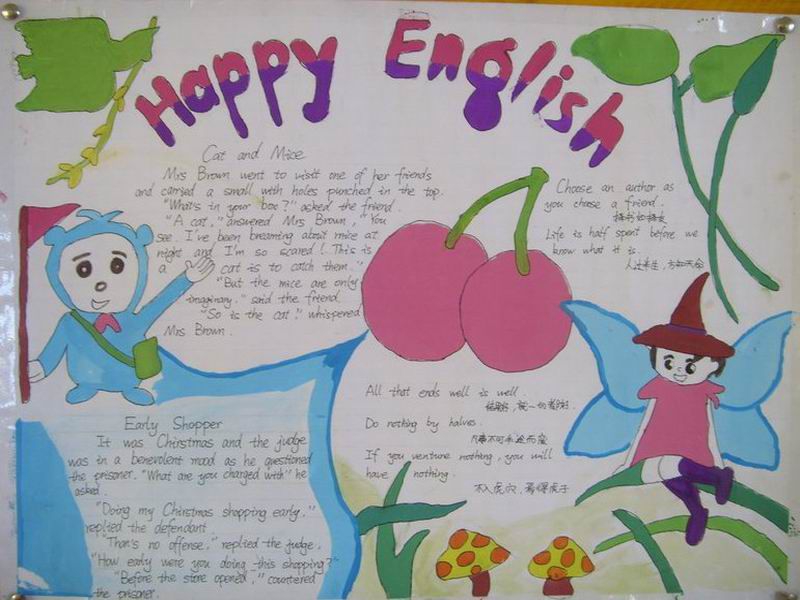 Happy English
Cat and Mice
Mrs Brown went to visit one of her friends
and carried a small with holes punched in the top.
"What's in your box?" asked the friend.
"A cat," answered Mrs Brown, "You
see. I've been breaming about mice at
night and I'm so scared! This is
a cat is to catch them."
"But the mice are only
imaginary." said the friend.
"So is the cat." whispered
Mrs Brown.
Choose an author as
you choose a friend.
择书如择友
Life is half spent before we
know what it is.
人过半生,方知天命
All that ends well is well.
结果好,就一切都好.
Do nothing by halves.
凡事不可半途而废
If you venture nothing, you will
have nothing.
不入虎穴,焉得虎子
Early Shopper
It was Chirstmas and the judge
was in a benevolent mood as he questioned
the prisoner. "What are you charged with" he
asked.
"Doing my Chirstmas shopping early."
replied the defendant
"That's no offense," replied the judge.
"How early were you doing this shopping?"
"Before the store opened," countered
the prisoner.